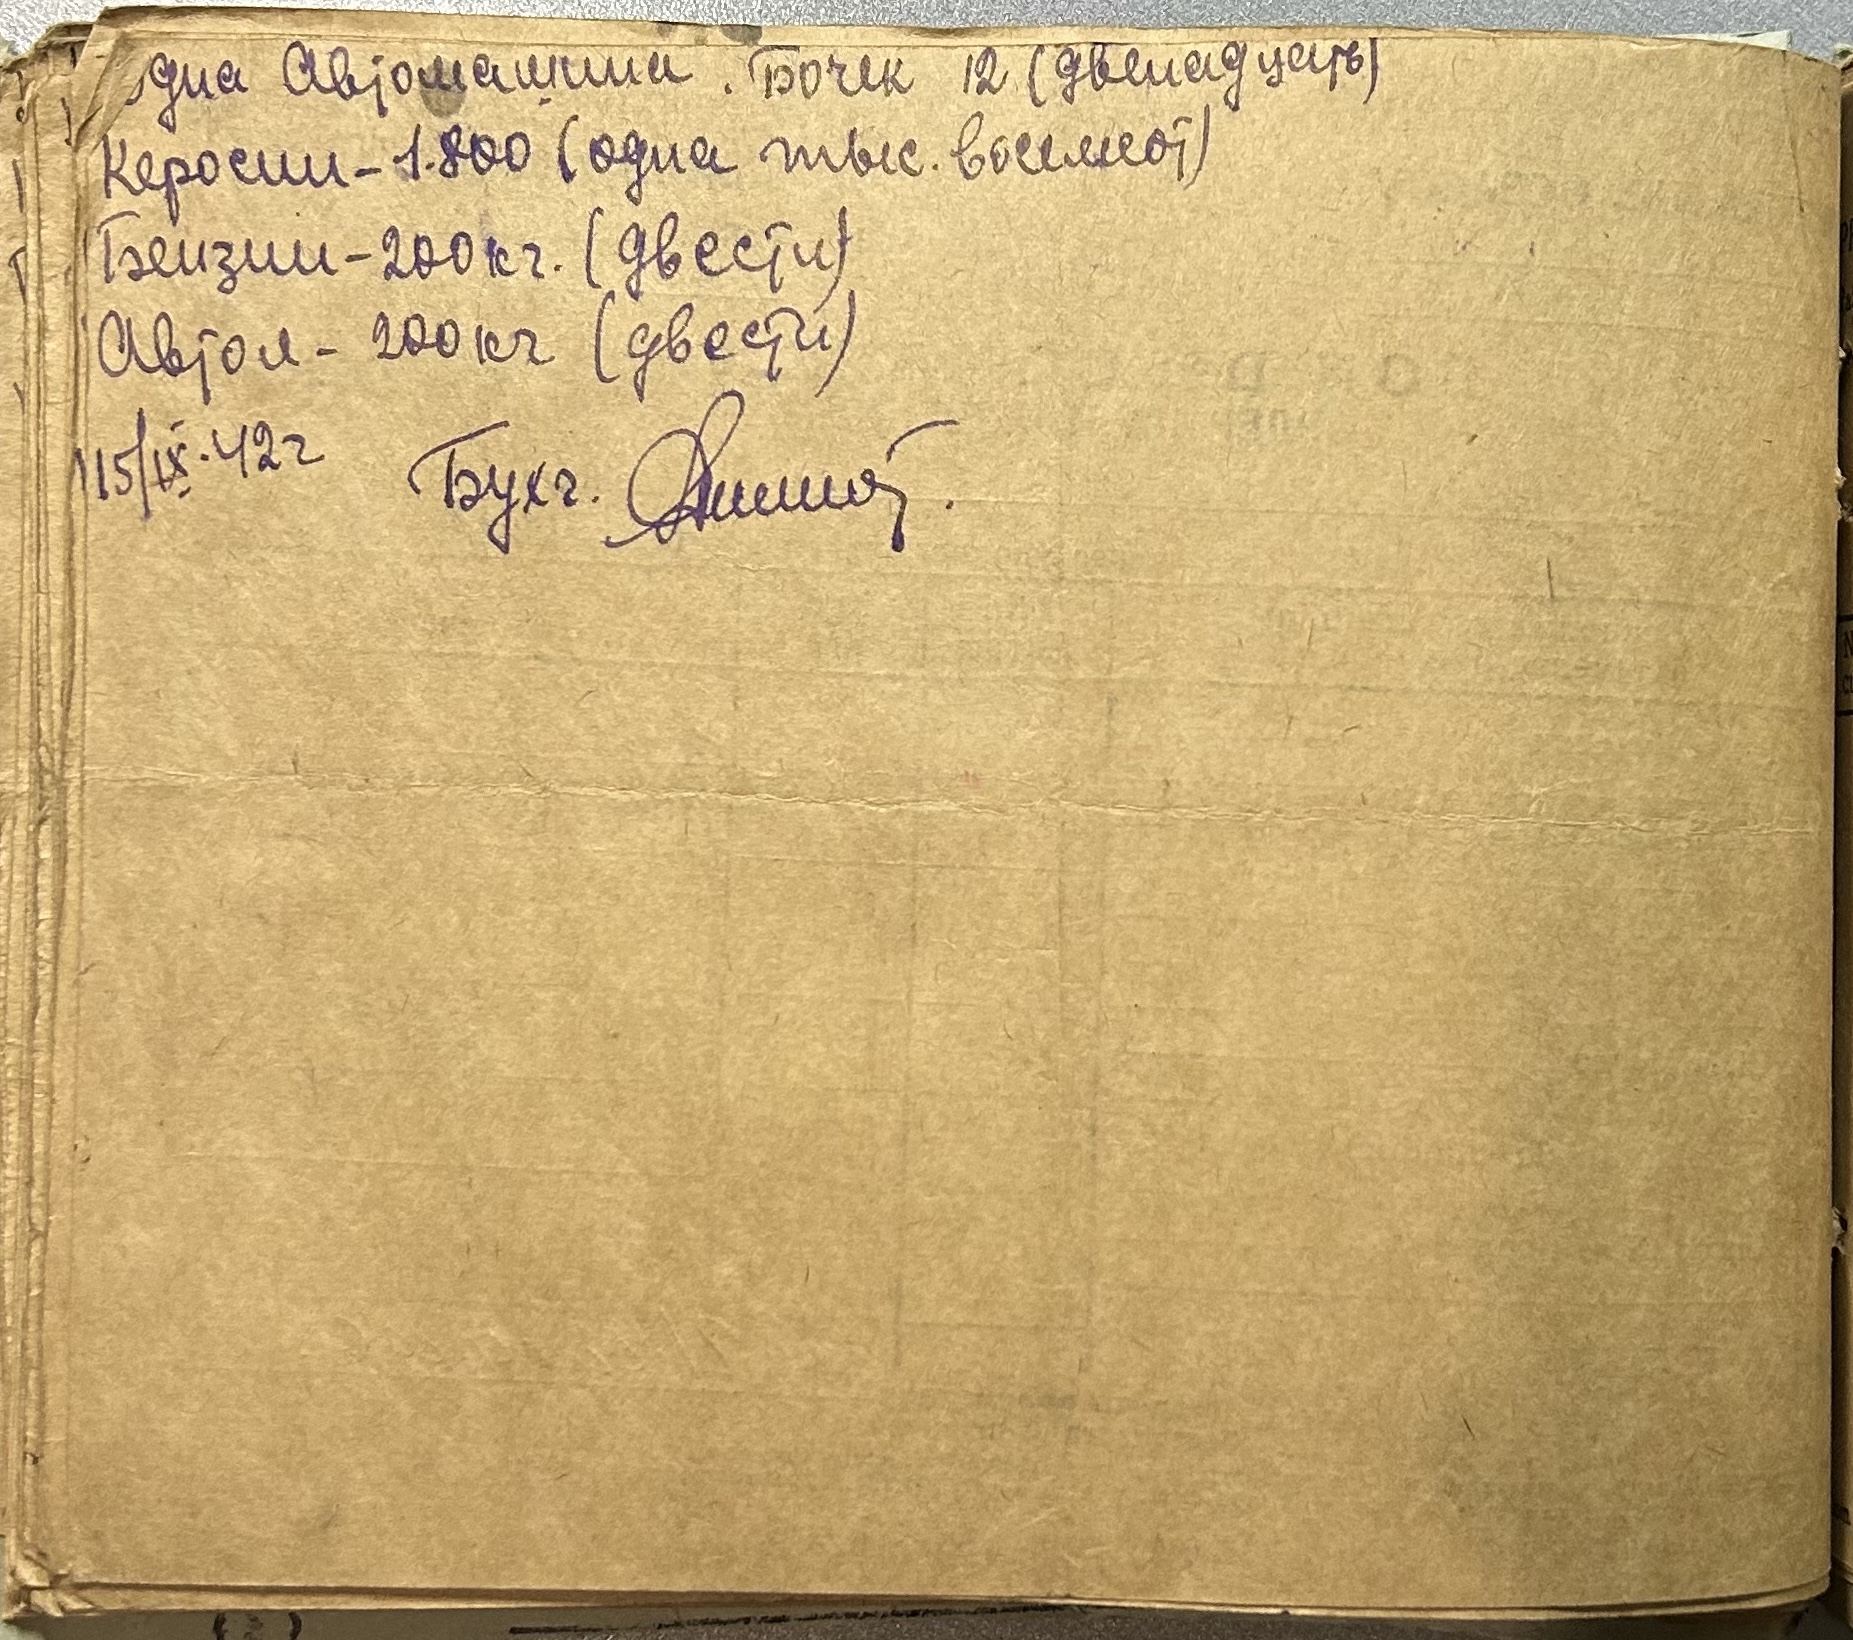 одна Автомашина. Бочек 12 (двенадцать)
Керосин - 1.800 (одна тыс. восемсот)
Бензин - 200 кг. (двести)
Автол - 200 кг (двести)
15/IX-42 г Бухг.